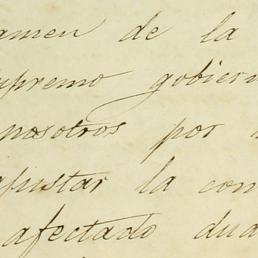 amen de la
upremo gobier
nosotros por
ajustar la con
afectado dua